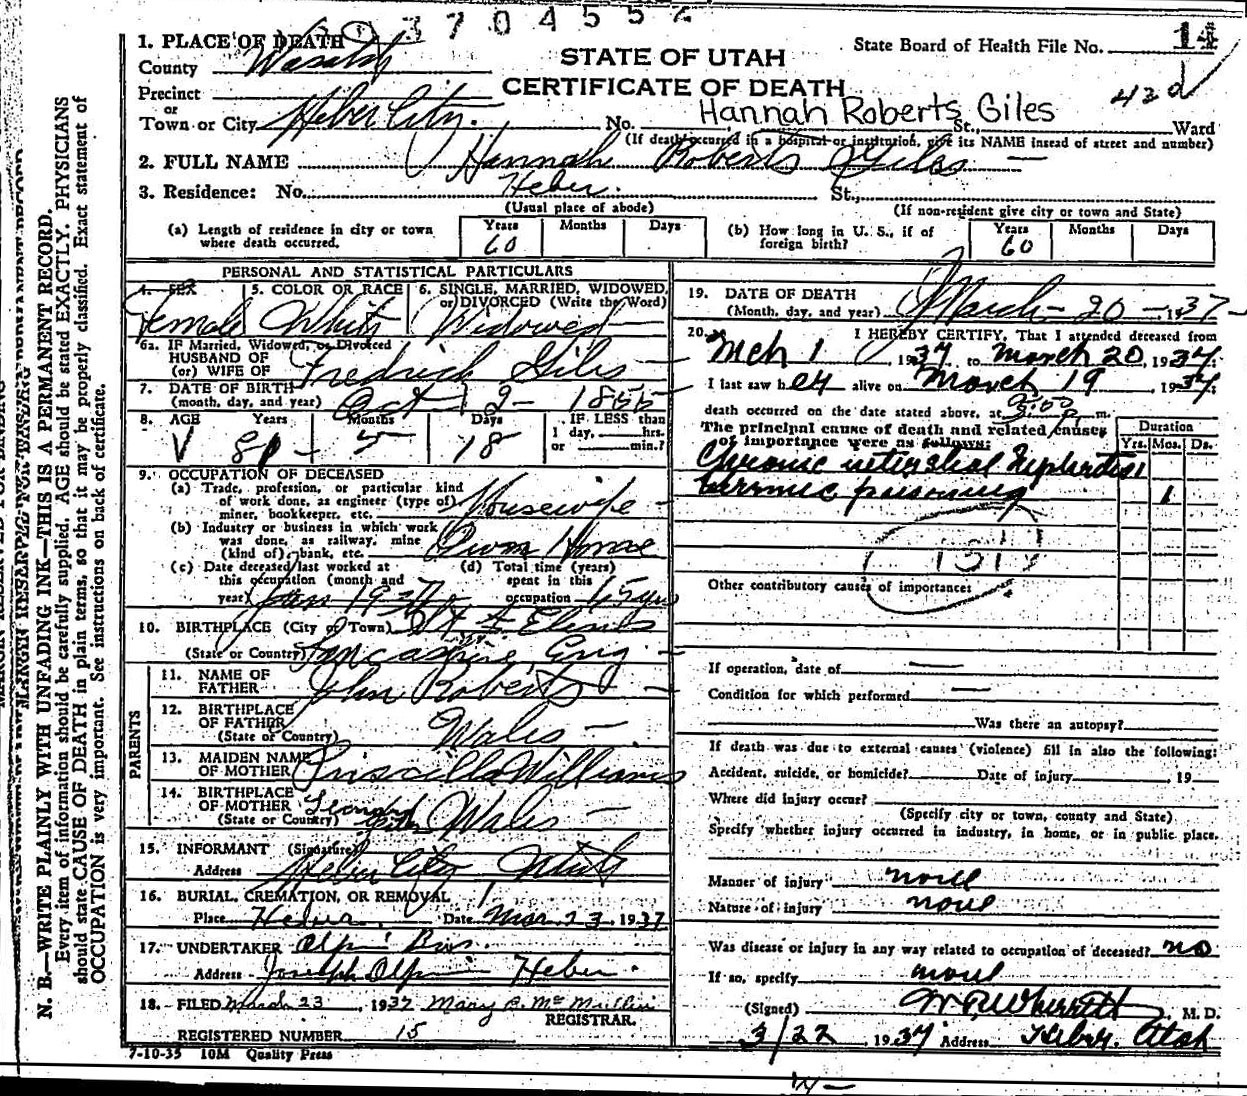 3704552
1. PLACE OF DEATH
County Wasatch
STATE OF UTAH
State Board of Health File No. 14
CERTIFICATE OF DEATH
Precinct
or
Town or City Heber City. No. St., Ward
Hannah Roberts Giles
42d
(If death occurred in a hospital or institution, give its NAME instead of street and number)
2. FULL NAME Hannah Roberts Giles
3. Residence: No. Heber. St.,
(Usual place of abode) (If non-resident give city or town and State)
(a) Length of residence in city or town where death occurred. Years 60 Months Days
(b) How long in U. S., if of foreign birth? Years 60 Months Days
PERSONAL AND STATISTICAL PARTICULARS
4. SEX 5. COLOR OR RACE 6. SINGLE, MARRIED, WIDOWED,
or DIVORCED (Write the Word)
Female White Widowed
6a. IF Married, Widowed, or Divorced
HUSBAND OF
(or) WIFE OF Fredrick Giles
7. DATE OF BIRTH
(month, day, and year) Oct 2 - 1855
8. AGE Years Months Days IF LESS than
1 day, hrs.
or min.?
81 5 18
9. OCCUPATION OF DECEASED
(a) Trade, profession, or particular kind
of work done, as engineer (type of)
miner, bookkeeper, etc. Housewife
(b) Industry or business in which work
was done, as railway, mine
(kind of) bank, etc. Own Home
(c) Date deceased last worked at
this occupation (month and
year) Jan 1937
(d) Total time (years)
spent in this
occupation 65 yrs
10. BIRTHPLACE (City or Town) St. Elens
(State or Country) Lancashire, Eng
PARENTS
11. NAME OF
FATHER John Roberts
12. BIRTHPLACE
OF FATHER
(State or Country) Wales
13. MAIDEN NAME
OF MOTHER Priscilla Williams
14. BIRTHPLACE
OF MOTHER
(State or Country) Wales
15. INFORMANT (Signature) Giles
Address Heber City Utah
16. BURIAL, CREMATION, OR REMOVAL
Place Heber, Date Mar. 23 1937
17. UNDERTAKER Olpin Bros.
Address Joseph Olpin Heber.
18. FILED March 23, 1937 Mary E. McMullin
REGISTRAR.
REGISTERED NUMBER 15
7-10-35 10M Quality Press
19. DATE OF DEATH
(Month, day, and year) March - 20 - 1937
20. I HEREBY CERTIFY, That I attended deceased from
Mch 1 1937 to March 20, 1937.
I last saw her alive on March 19 1937,
death occurred on the date stated above, at 3:00 P m.
The principal cause of death and related causes
of importance were as follows:
Duration
Yrs. Mos. Ds.
Chronic interstitial Nephritis 1
Uremic poisoning 1
131
Other contributory causes of importance:
If operation, date of
Condition for which performed
Was there an autopsy?
If death was due to external causes (violence) fill in also the following:
Accident, suicide, or homicide? Date of injury , 19
Where did injury occur?
(Specify city or town, county and State)
Specify whether injury occurred in industry, in home, or in public place.
Manner of injury none
Nature of injury none
Was disease or injury in any way related to occupation of deceased? no
If so, specify none
(Signed) W. R. Wherritt, M. D.
3/22 1937 Address Heber. Utah
N. B.—WRITE PLAINLY WITH UNFADING INK—THIS IS A PERMANENT RECORD.
Every item of information should be carefully supplied. AGE should be stated EXACTLY. PHYSICIANS
should state CAUSE OF DEATH in plain terms, so that it may be properly classified. Exact statement of
OCCUPATION is very important. See instructions on back of certificate.